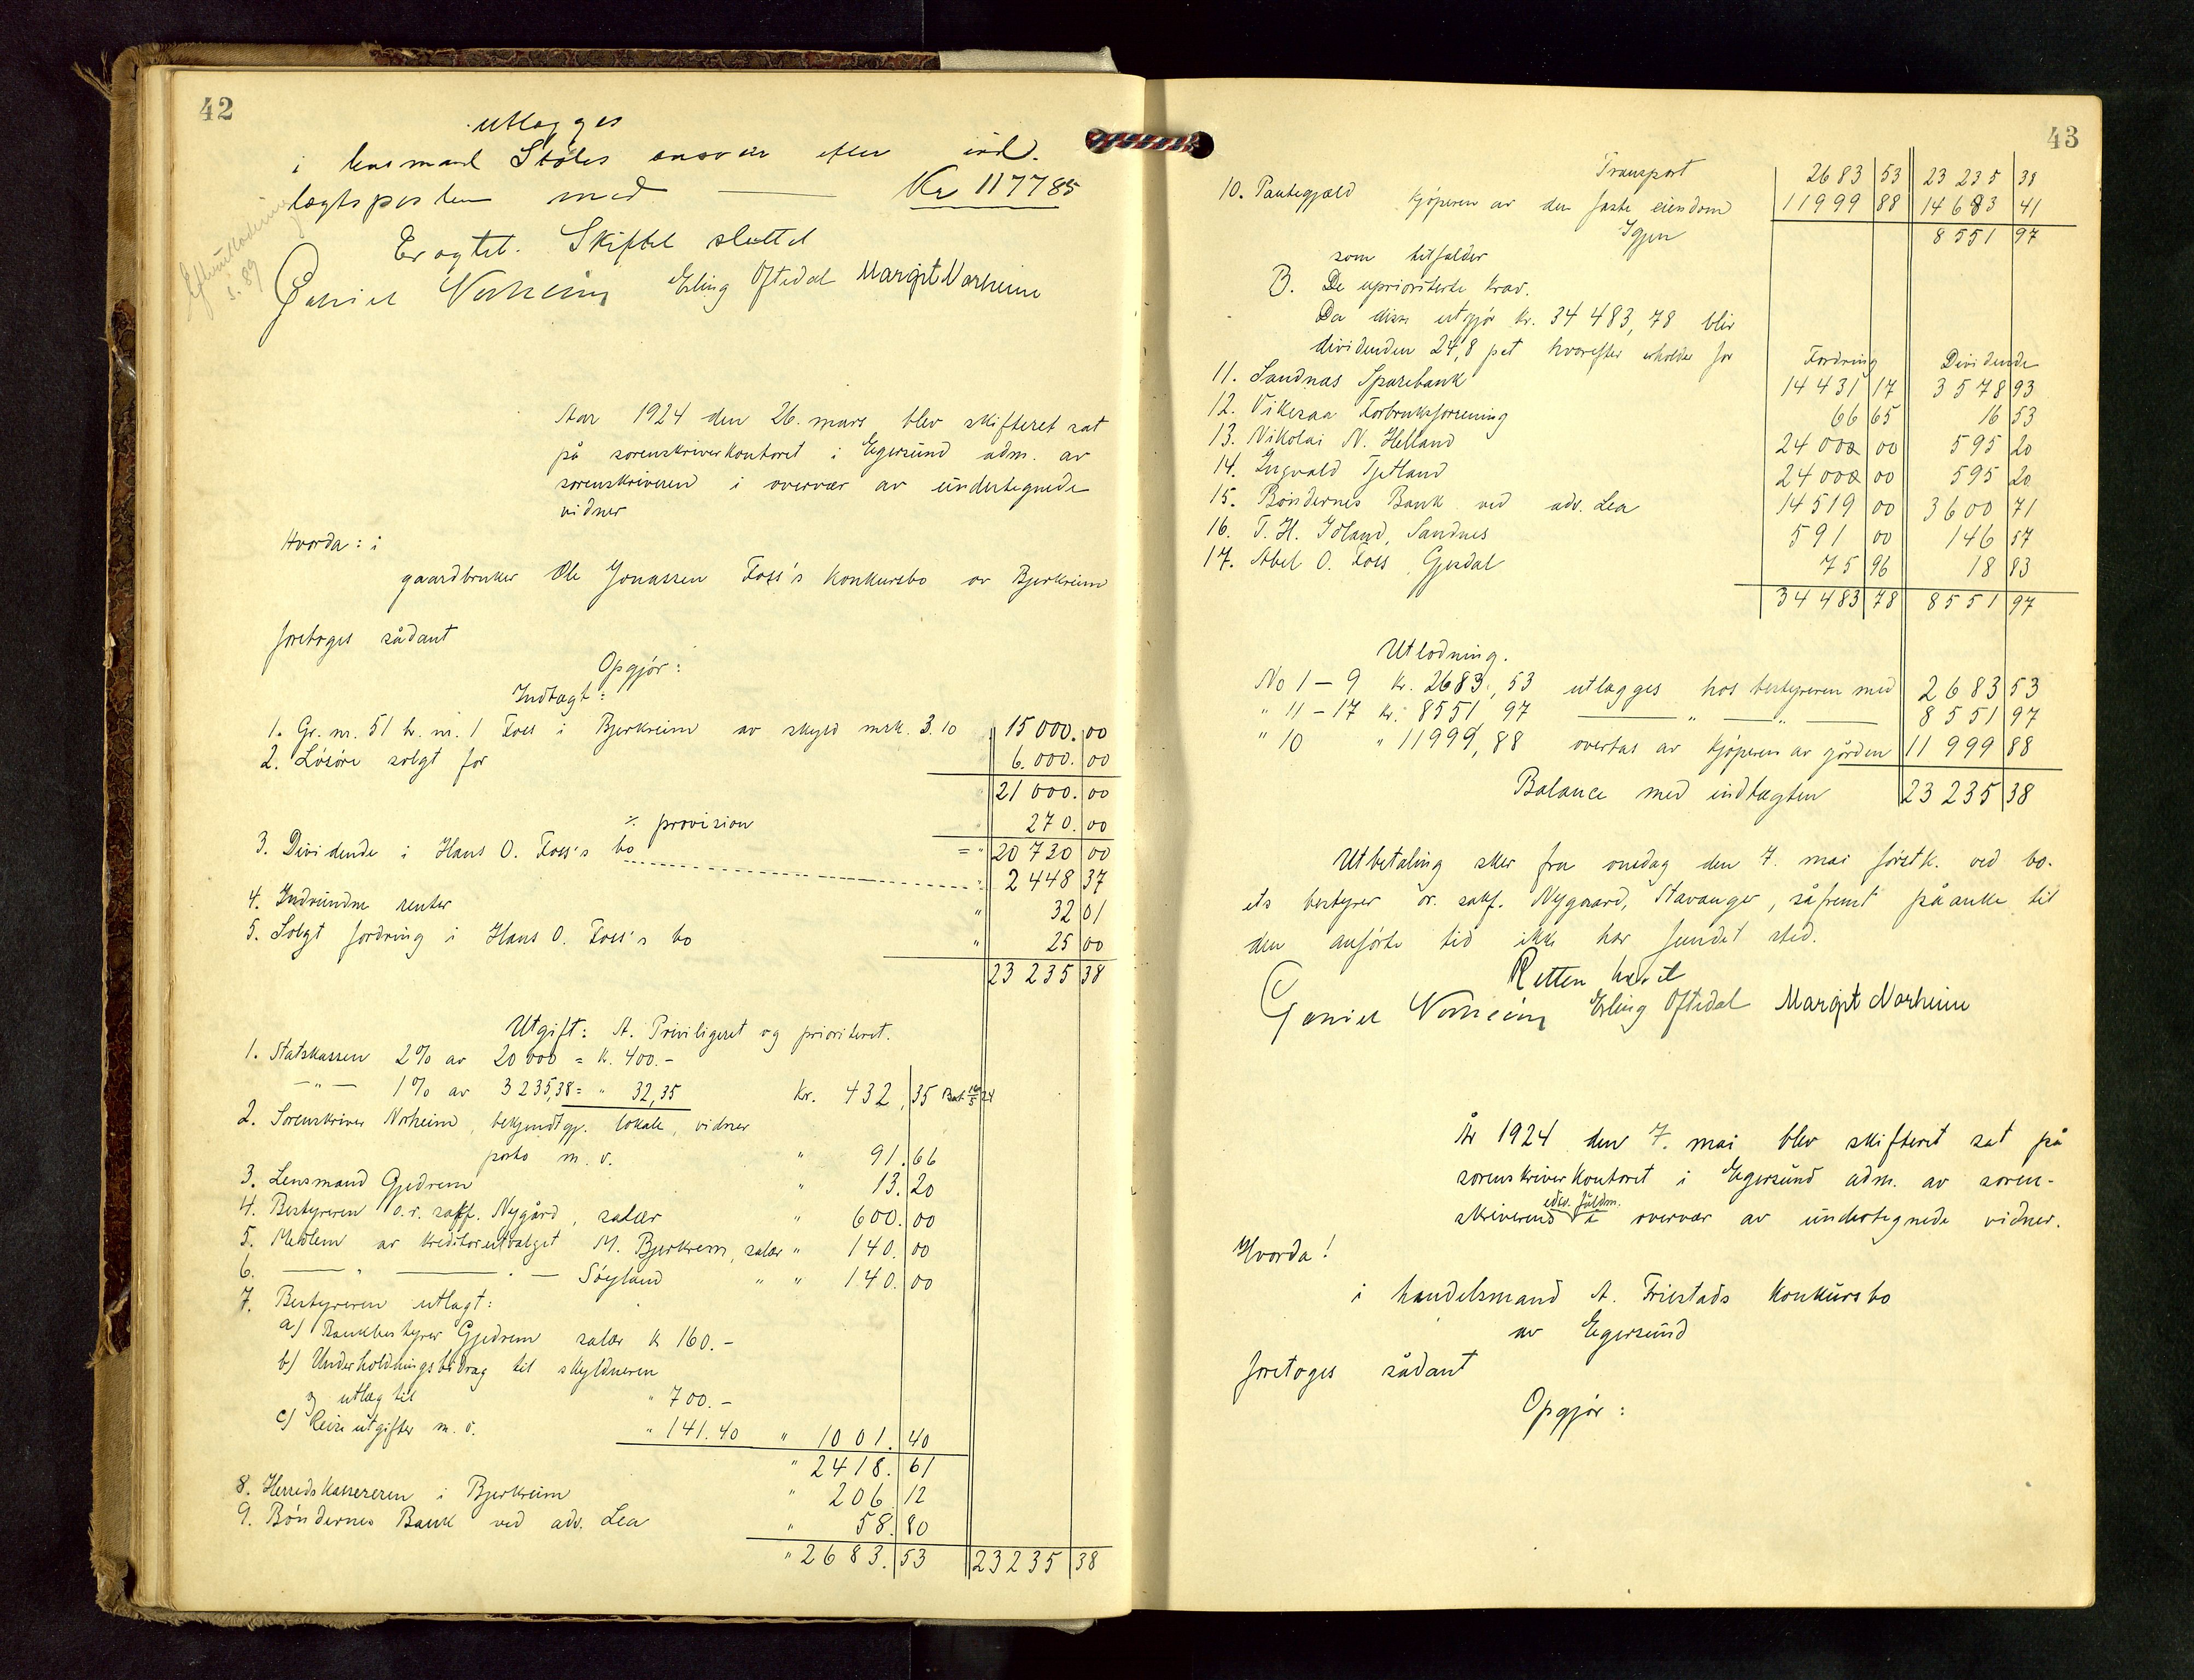 42
utlægges
i lensmand Stöles ansvar efter ind-
tægtsposten med — Kr 117785
Eragtet. Skiftet sluttet
Daniel Norheim Erling Oftedal Margit Norheim
Efterutlodning
s. 89
Aar 1924 den 26. mars blev skifteret sat
på sorenskriverkontoret i Egersund adm. av
sorenskriveren i overvær av undertegnede
vidner
Hvorda: i
gaardbruker Ole Jonassen Foss's konkursbo av Bjerkreim
foretoges sådant
Opgjör:
Indtægt:
1. Gr. nr. 51 br. nr. 1 Foss i Bjerkreim av skyld mrk. 3.10 15 000.00
2. Lösöre solgt for 6.000.00
21 000.00
÷ provision 270.00
= " 20 730 00
3. Dividende i Hans O. Foss's bo " 2 448 37
4. Indvundne renter " 32 01
5. Solgt fordring i Hans O. Foss's bo " 25 00
23 235 38
Utgift: A. Priviligeret og prioriteret.
1. Statskassen 2% av 20 000 = k. 400.-
—"— 1% av 3235,38 = " 32,35 Kr. 432,35 Bet 16/5 24
2. Sorenskriver Norheim, bekjendtgj. lokale, vidner
porto m. v. " 91.66
3. Lensmand Gjedrem " 13.20
4. Bestyreren o.r. sakf. Nygård, salær " 600.00
5. Medlem av kreditorutvalget M. Bjerkrem, salær " 140.00
6. — " — " — Söyland " " 140.00
7. Bestyreren utlagt:
a) Bankbestyrer Gjedrem salær k 160.-
b) Underholdningsbidrag til skyldneren
og utlæg til " 700.-
c) Reiseutgifter m. v. " 141.40 " 1001.40
" 2418.61
8. Herredskassereren i Bjerkreim " 206.12
9. Böndernes Bank ved adv. Lea " 58.80
" 2683.53 23235 38
43
Transport 2683 53 23 235 38
10. Pantegjæld kjöperen av den faste eiendom 11999 88 14 683 41
Igjen 8 551 97
som tilfalder
B. De uprioriterte krav.
Da disse utgjör kr. 34 483,78 blir
dividenden 24,8 pct hvorefter erholder for Fordring Dividende
11. Sandnas Sparebank 14 431 17 3 578 93
12. Vikesaa Forbruksforrening 66 65 16 53
13. Nikolai N. Helland 24 000 00 595 20
14. Ingvald Tjetland 24 000 00 595 20
15. Böndernes Bank ved adv. Lea 14 519 00 3 600 71
16. T. H. Idland, Sandnes 591 00 146 57
17. Abel O. Foss Gjesdal 75 96 18 83
34 483 78 8 551 97
Utlodning.
No 1 – 9 kr. 2683,53 utlægges hos bestyreren med 2 683 53
" 11 – 17 kr. 8551,97 — " — " — 8 551 97
" 10 " 11999,88 overtas av kjöperen av gården 11 999 88
Balance med indtægten 23 235 38
Utbetaling sker fra onsdag den 7. mai förstk. ved bo-
ets bestyrer o.r. sakf. Nygaard, Stavanger, såfremt påanke til
den anförte tid ikke har fundet sted.
Retten hævet
Daniel Norheim Erling Oftedal Margit Norheim
År 1924 den 7. mai blev skifteret sat på
sorenskriverkontoret i Egersund adm. av soren-
edsv. fuldm.
skriverens i overvær av undertegnede vidner.
Hvorda!
i handelsmand A. Friestads konkursbo
av Egersund
foretoges sådant
Opgjör: